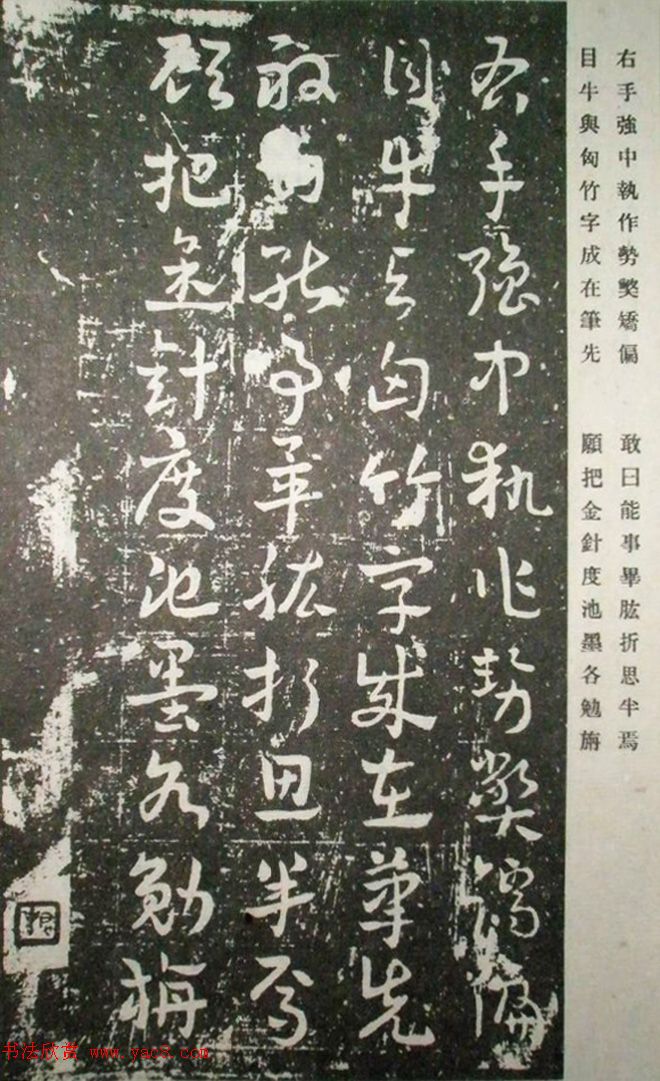 右手強中執作勢獘矯偏
目牛與匈竹字成在筆先
敢曰能事畢肱折思半焉
願把金針度池墨各勉旃
右手強中執作勢獘矯偏
目牛與匈竹字成在筆先
敢曰能事畢肱折思半焉
願把金針度池墨各勉旃
书法欣赏 www.yac8.com